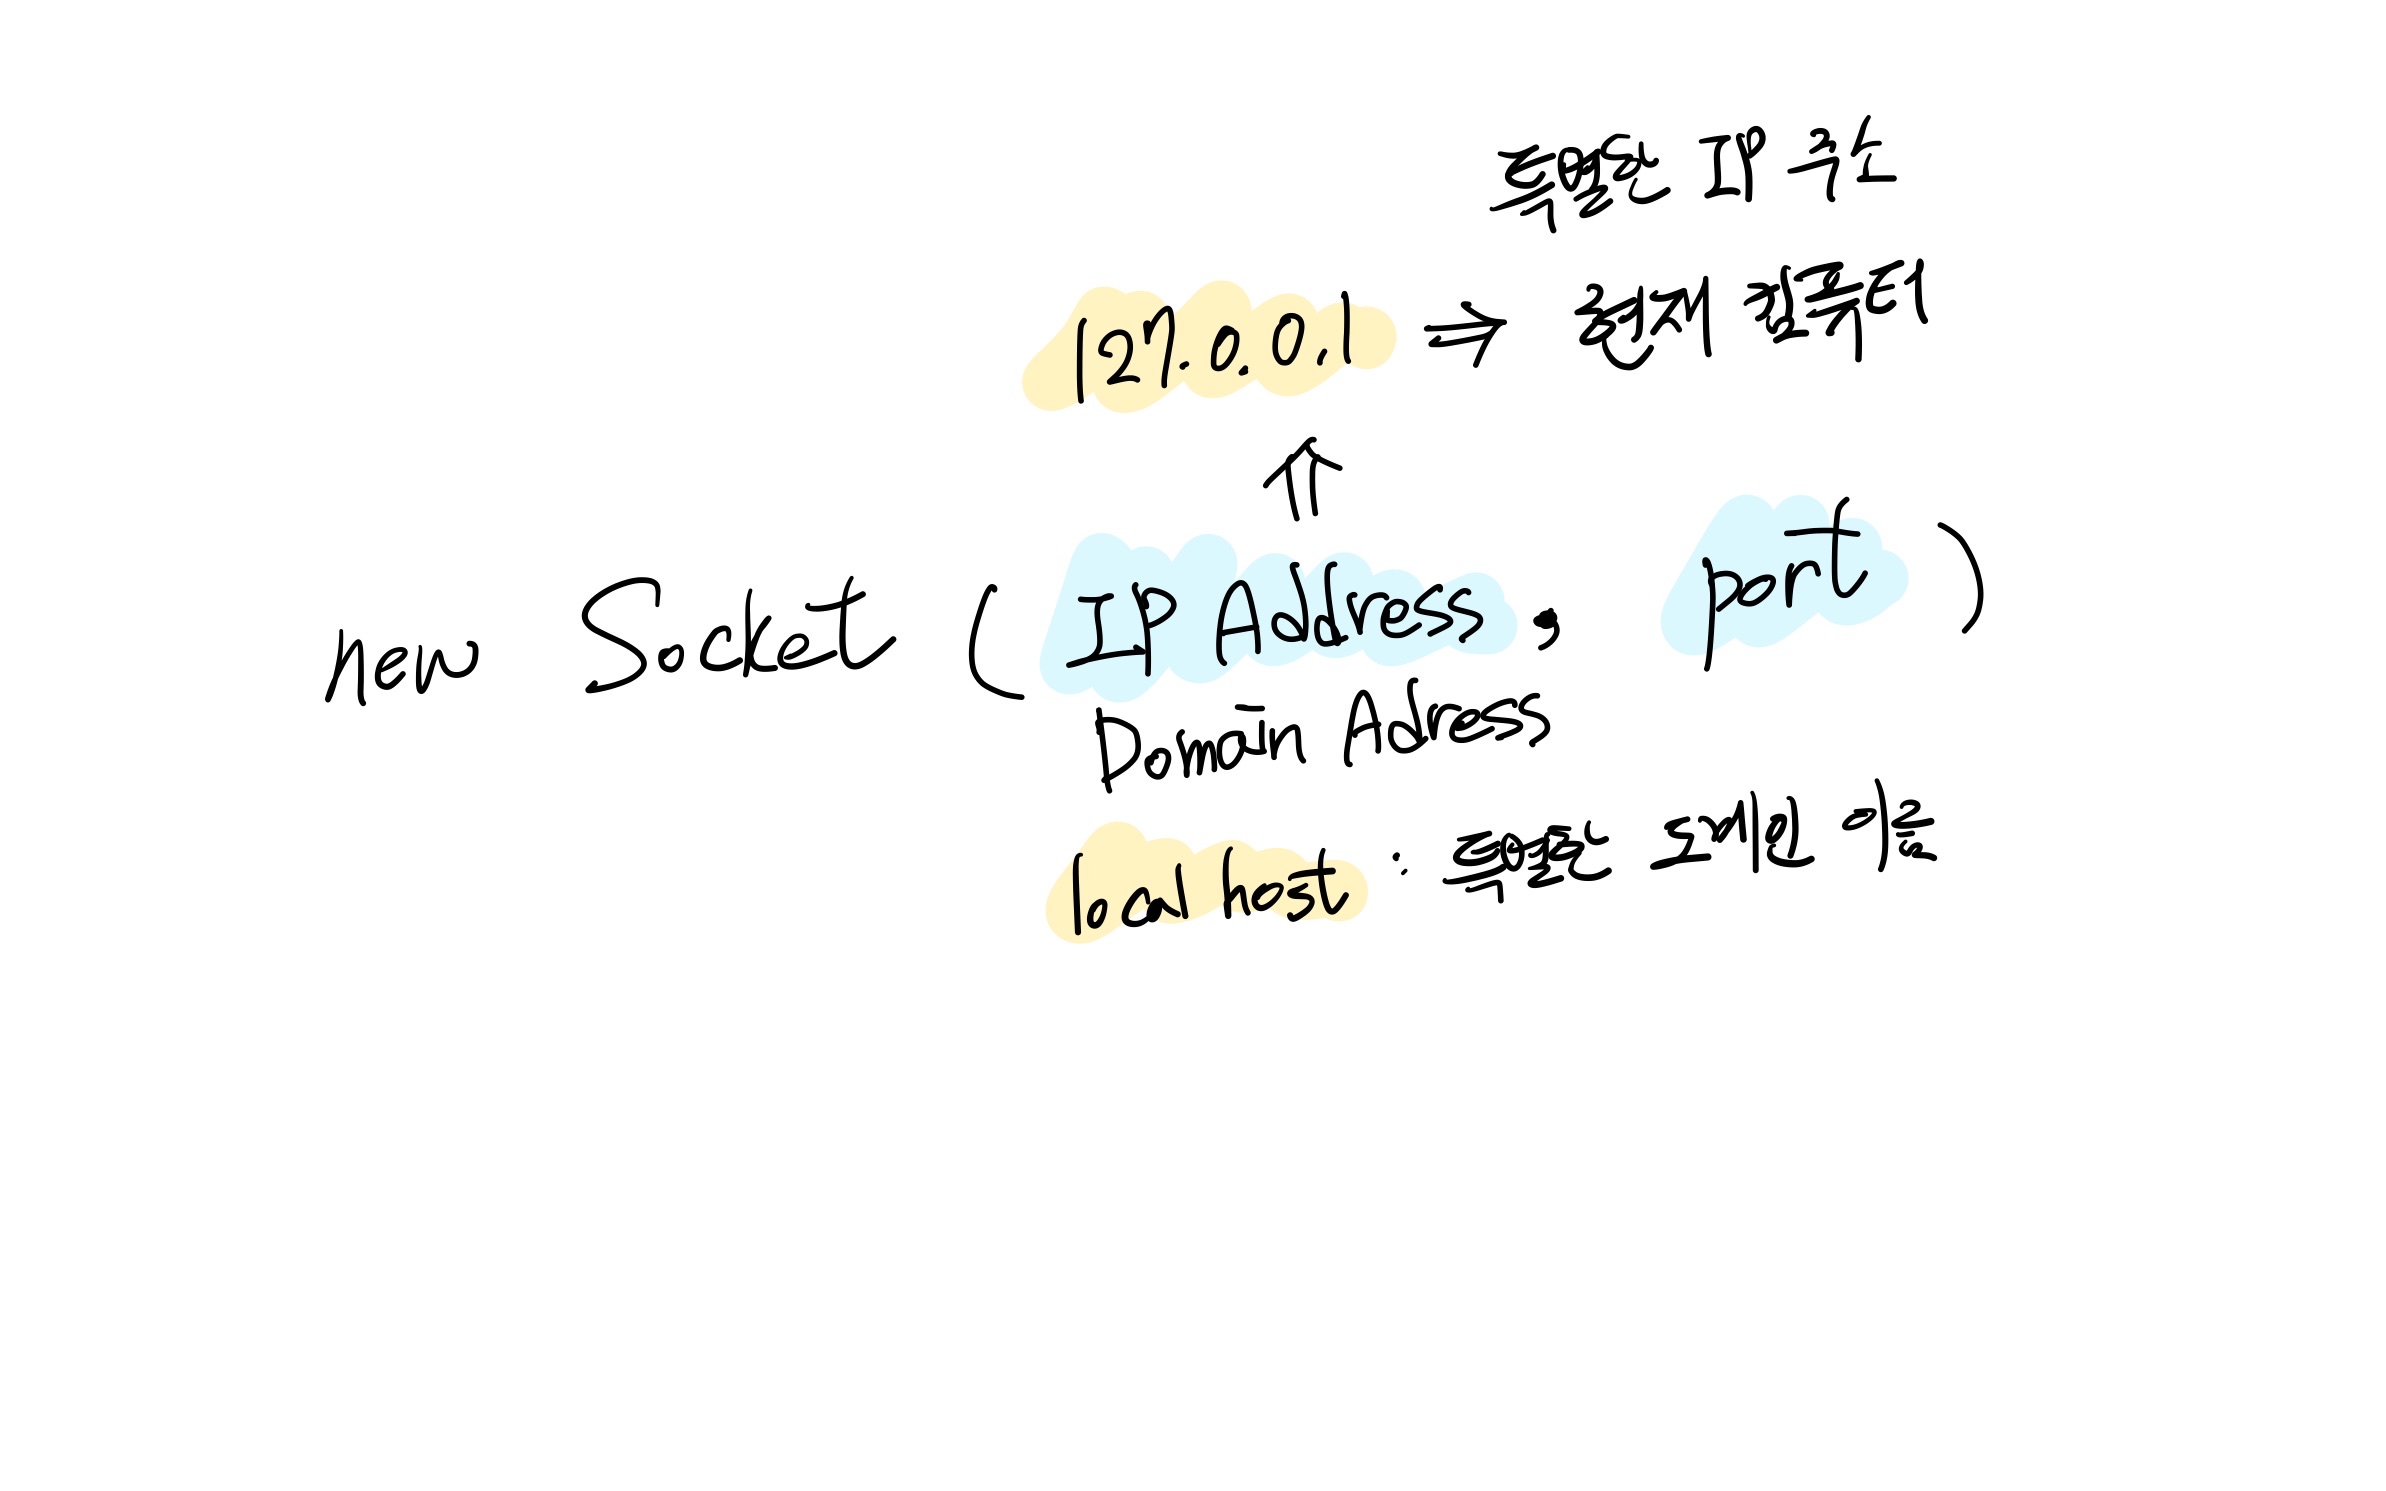 특별한 IP 주소
127.0.0.1 ⇒ 현재 컴퓨터
⇑
new Socket ( IP Address, port )
Domain Address
localhost : 특별한 도메인 이름